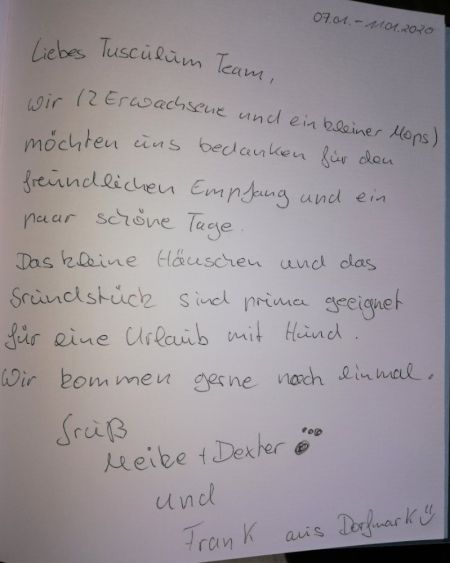 07.01. - 11.01.2020
Liebes Tusculum Team,
wir (2 Erwachsene und ein kleiner Mops)
möchten uns bedanken für den
freundlichen Empfang und ein
paar schöne Tage.
Das kleine Häuschen und das
Grundstück sind prima geeignet
für eine Urlaub mit Hund.
Wir kommen gerne noch einmal.
Gruß
Meike + Dexter
und
Frank aus Dorfmark